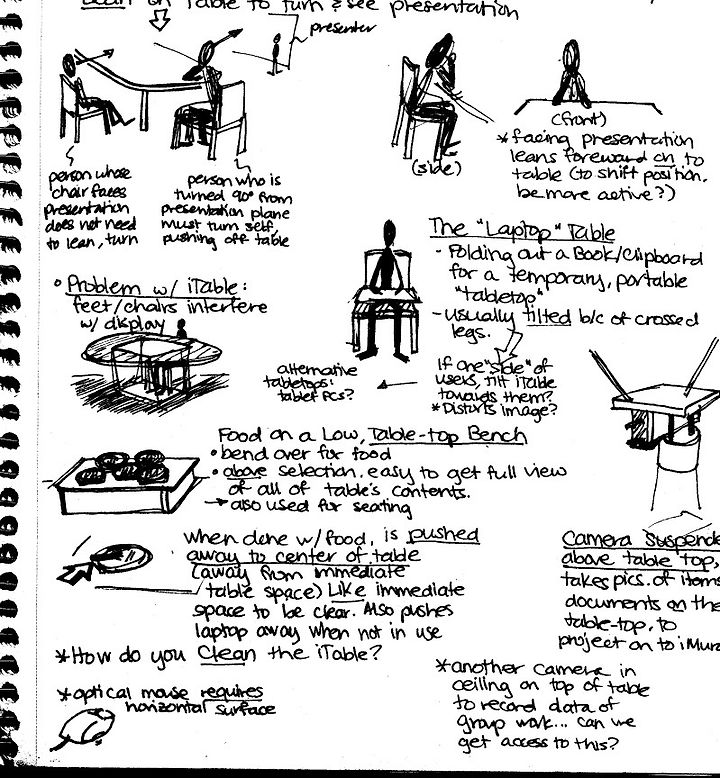 lean on Table to turn & see presentation
presenter
person whose
chair faces
presentation
does not need
to lean, turn
person who is
turned 90° from
presentation plane
must turn self,
pushing off table
(side)
(front)
* facing presentation
leans foreward on to
table (to shift position.
be more active?)
The "Laptop" Table
- Folding out a Book/Clipboard
for a temporary, portable
"tabletop"
- usually tilted b/c of crossed
legs.
If one "side" of
users, tilt iTable
towards them?
* Distorts image?
alternative
tabletops:
tablet PCs?
• Problem w/ iTable:
feet/chairs interfere
w/ display
Food on a Low, Table-top Bench
• bend over for food
• above selection. easy to get full view
of all of table's contents.
→ also used for seating
When done w/ food, is pushed
away to center of table
(away from immediate
table space) Like immediate
space to be clear. Also pushes
laptop away when not in use
* How do you Clean the iTable?
* optical mouse requires
horizontal surface
Camera Suspende
above table top,
takes pics. of items
documents on the
table-top, to
project on to iMura
* another camera in
ceiling on top of table
to record data of
group work... can we
get access to this?